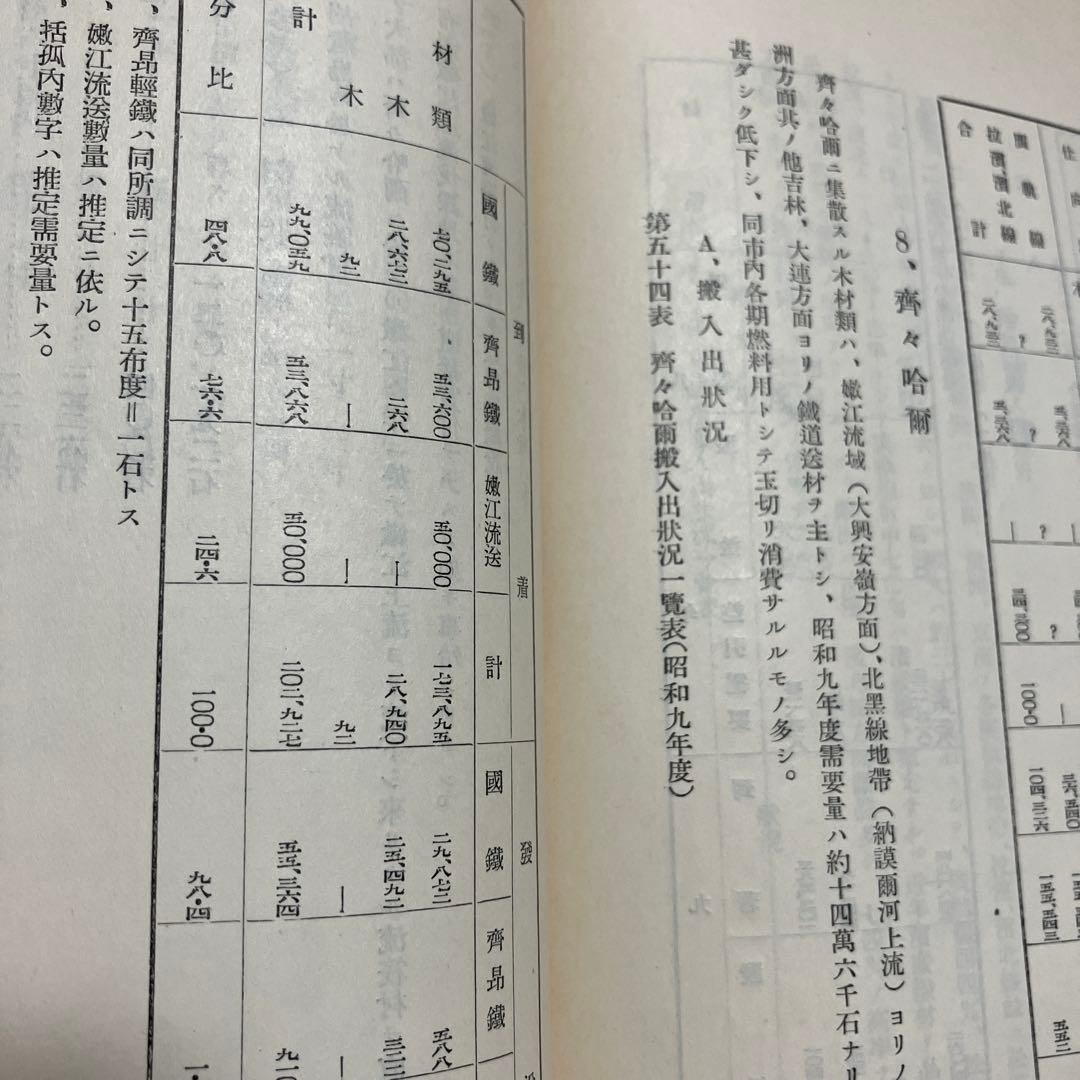 仕向
關嶺線
拉濱、濱北線
合計
二八、九三二
?
二八、九三二
?
?
一〇〇・〇
一〇四、三二六
一五五、五四三
五五二
8、齊々哈爾
齊々哈爾ニ集散スル木材類ハ、嫩江流域(大興安嶺方面)、北黑線地帶(納謨爾河上流)ヨリノ
洲方面其ノ他吉林、大連方面ヨリノ鐵道送材ヲ主トシ、昭和九年度需要量ハ約十四萬六千石ナリ
甚ダシク低下シ、同市內各期燃料用トシテ玉切リ消費サルルモノ多シ。
A、搬入出狀況
第五十四表 齊々哈爾搬入出狀況一覽表(昭和九年度)
到着 發
國鐵 齊昻鐵 嫩江流送 計 國鐵 齊昻鐵
材類 七〇、二九五 五三、六〇〇 五〇、〇〇〇 一七三、八九五 二九、八七二 五八八
木 二八、六七二 二六八 ― 二八、九四〇 二五、四九二 三二二
木 九二 ― ― 九二 ― ―
計 九九、〇三九 五三、八六八 五〇、〇〇〇 二〇二、九二七 五五、三六四 九一〇
分比 四八・八 二六・六 二四・六 一〇〇・〇 九八・四 一・
、齊昻輕鐵ハ同所調ニシテ十五布度=一石トス
、嫩江流送數量ハ推定ニ依ル。
、括孤內數字ハ推定需要量トス。